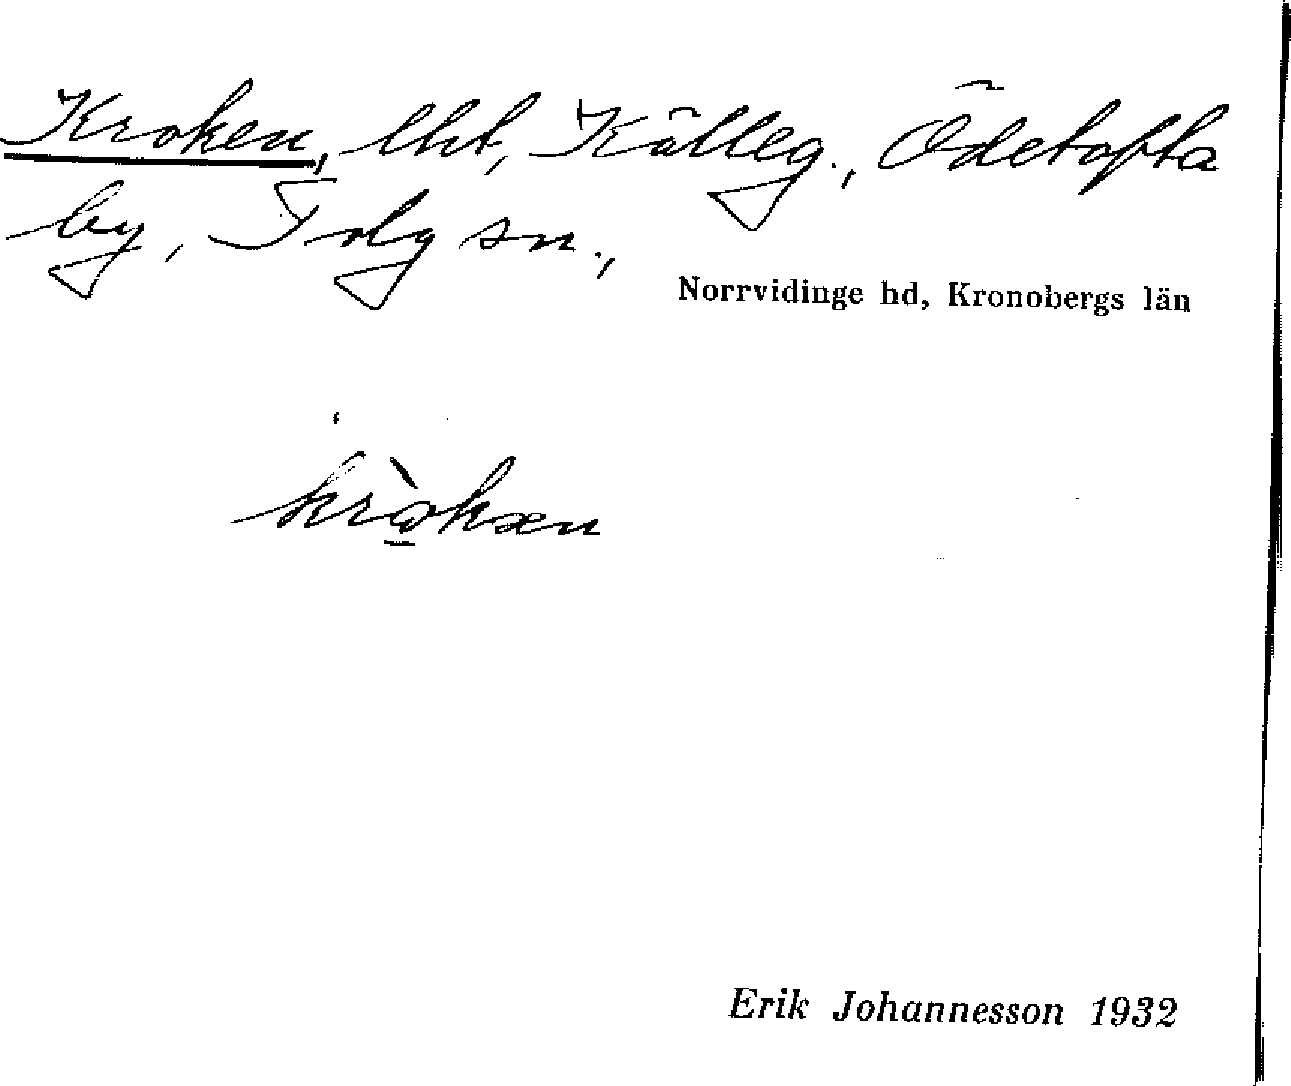 Kroken, lht, Källeg., Ödetofta
by, Tolg sn.,
Norrvidinge hd, Kronobergs län
kròkæn
Erik Johannesson 1932